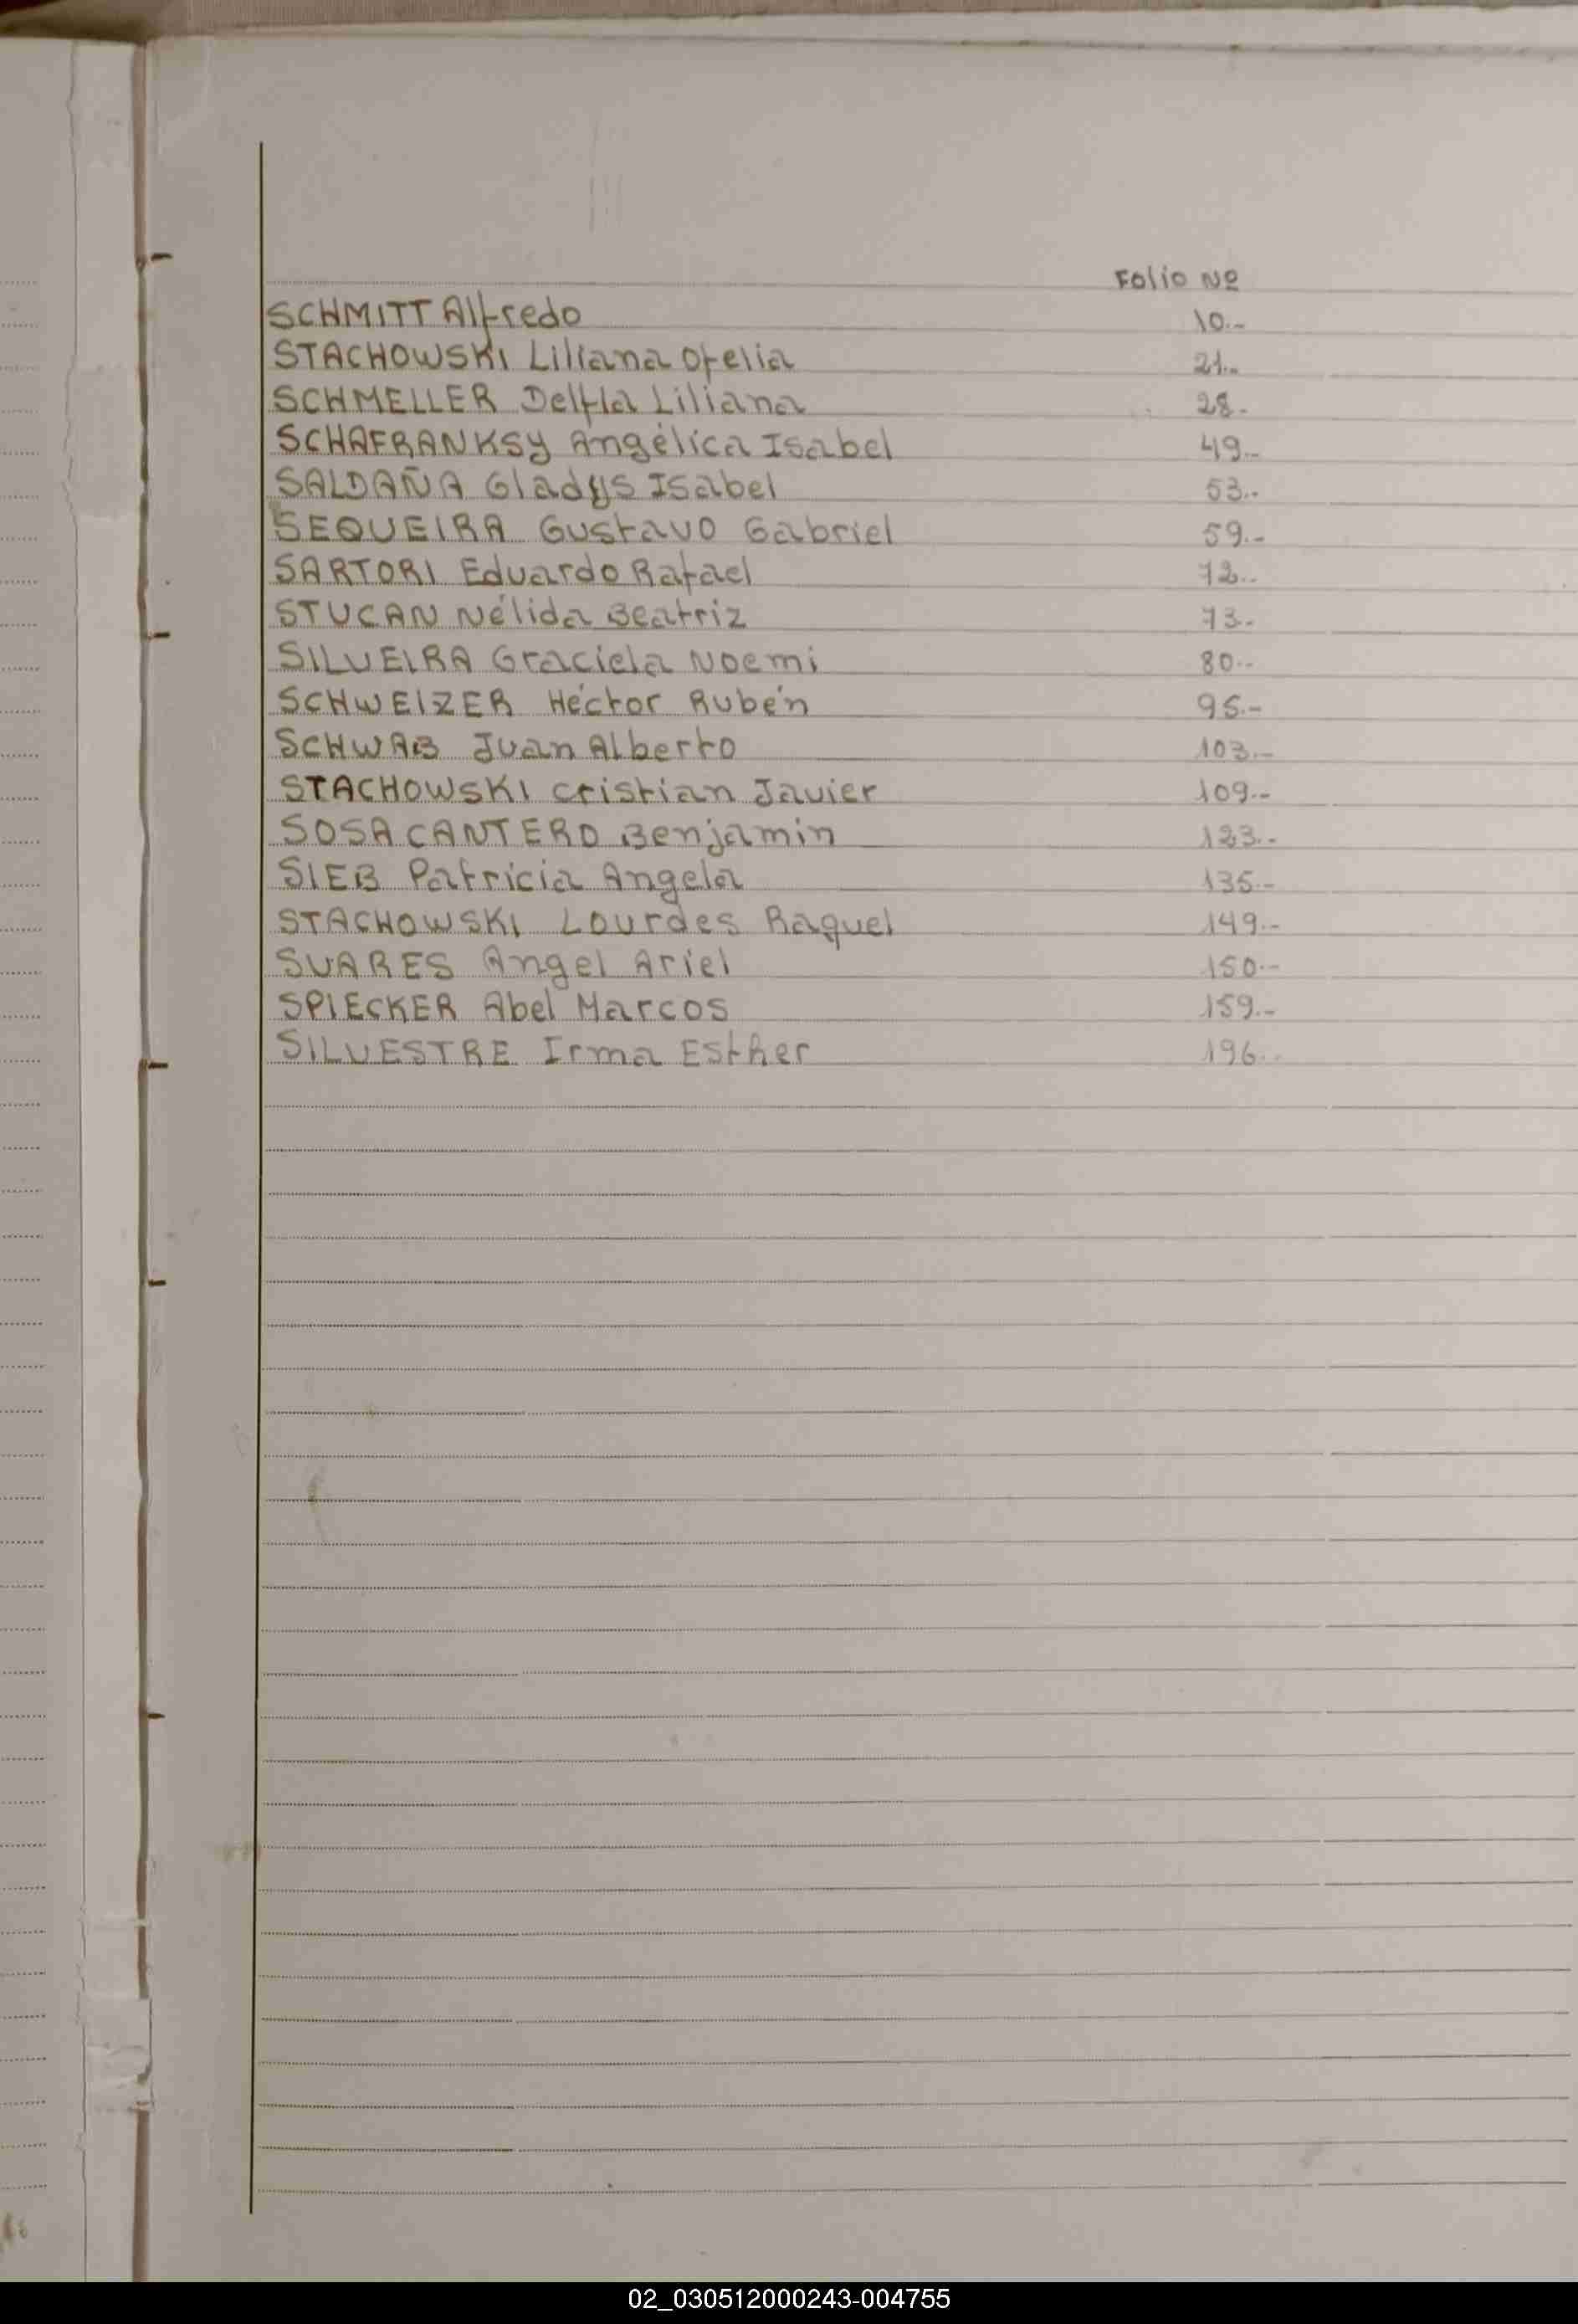 Folio Nº
SCHMITT Alfredo 10.-
STACHOWSKI Liliana Ofelia 21.-
SCHMELLER Delfla Liliana 28.-
SCHAFRANKSY Angélica Isabel 49.-
SALDAÑA Gladys Isabel 53.-
SEQUEIRA Gustavo Gabriel 59.-
SARTORI Eduardo Rafael 72.-
STUCAN Nélida Beatriz 73.-
SILVEIRA Graciela Noemi 80.-
SCHWEIZER Héctor Rubén 95.-
SCHWAB Juan Alberto 103.-
STACHOWSKI Cristian Javier 109.-
SOSA CANTERO Benjamin 123.-
SIEB Patricia Angela 135.-
STACHOWSKI Lourdes Raquel 149.-
SUARES Angel Ariel 150.-
SPIECKER Abel Marcos 159.-
SILVESTRE Irma Esther 196.-
02_030512000243-004755